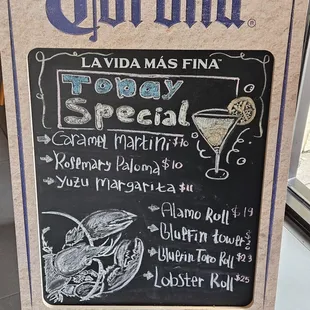 Corona®
LA VIDA MÁS FINA™
Today
Special
Caramel Martini $10
Rosemary Paloma $10
Yuzu Margarita $11
Alamo Roll $19
Bluefin tower
Bluefin Toro Roll $23
Lobster Roll $25